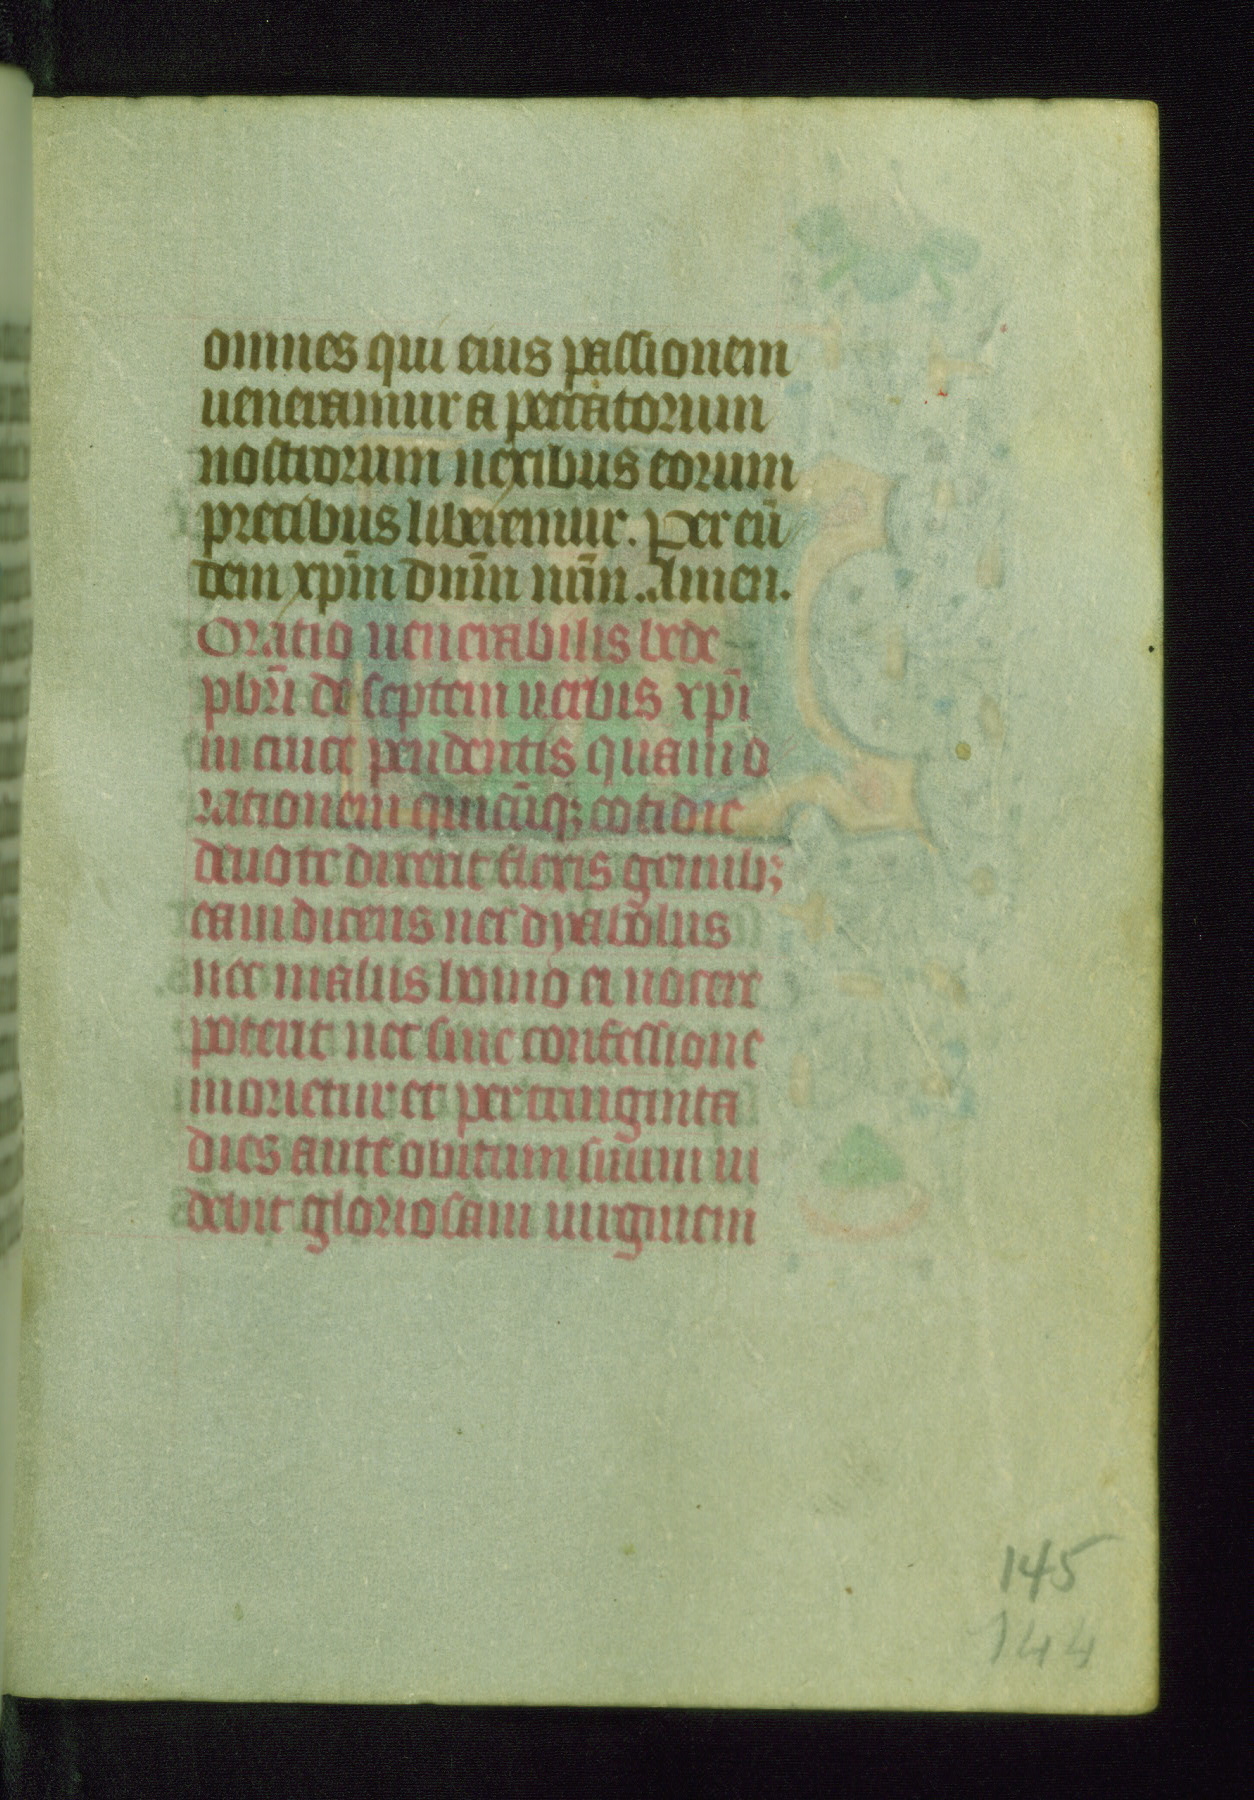 omnes qui eius passionem
ueneramur a peccatorum
nostrorum nexibus eorum
precibus liberemur. Per eū
dem xp̄m dn̄m nr̄m. Amen.
Oratio uenerabilis bede
pbrī de septem uerbis xpī
in cruce pendentis quam o
rationem quicūq; cotidie
deuote dixerit flexis genib;
eam dicens nec dyabolus
nec malus homo ei nocere
poterit nec sine confessione
morietur et per triginta
dies ante obitum suum ui
debit gloriosam uirginem
145
144